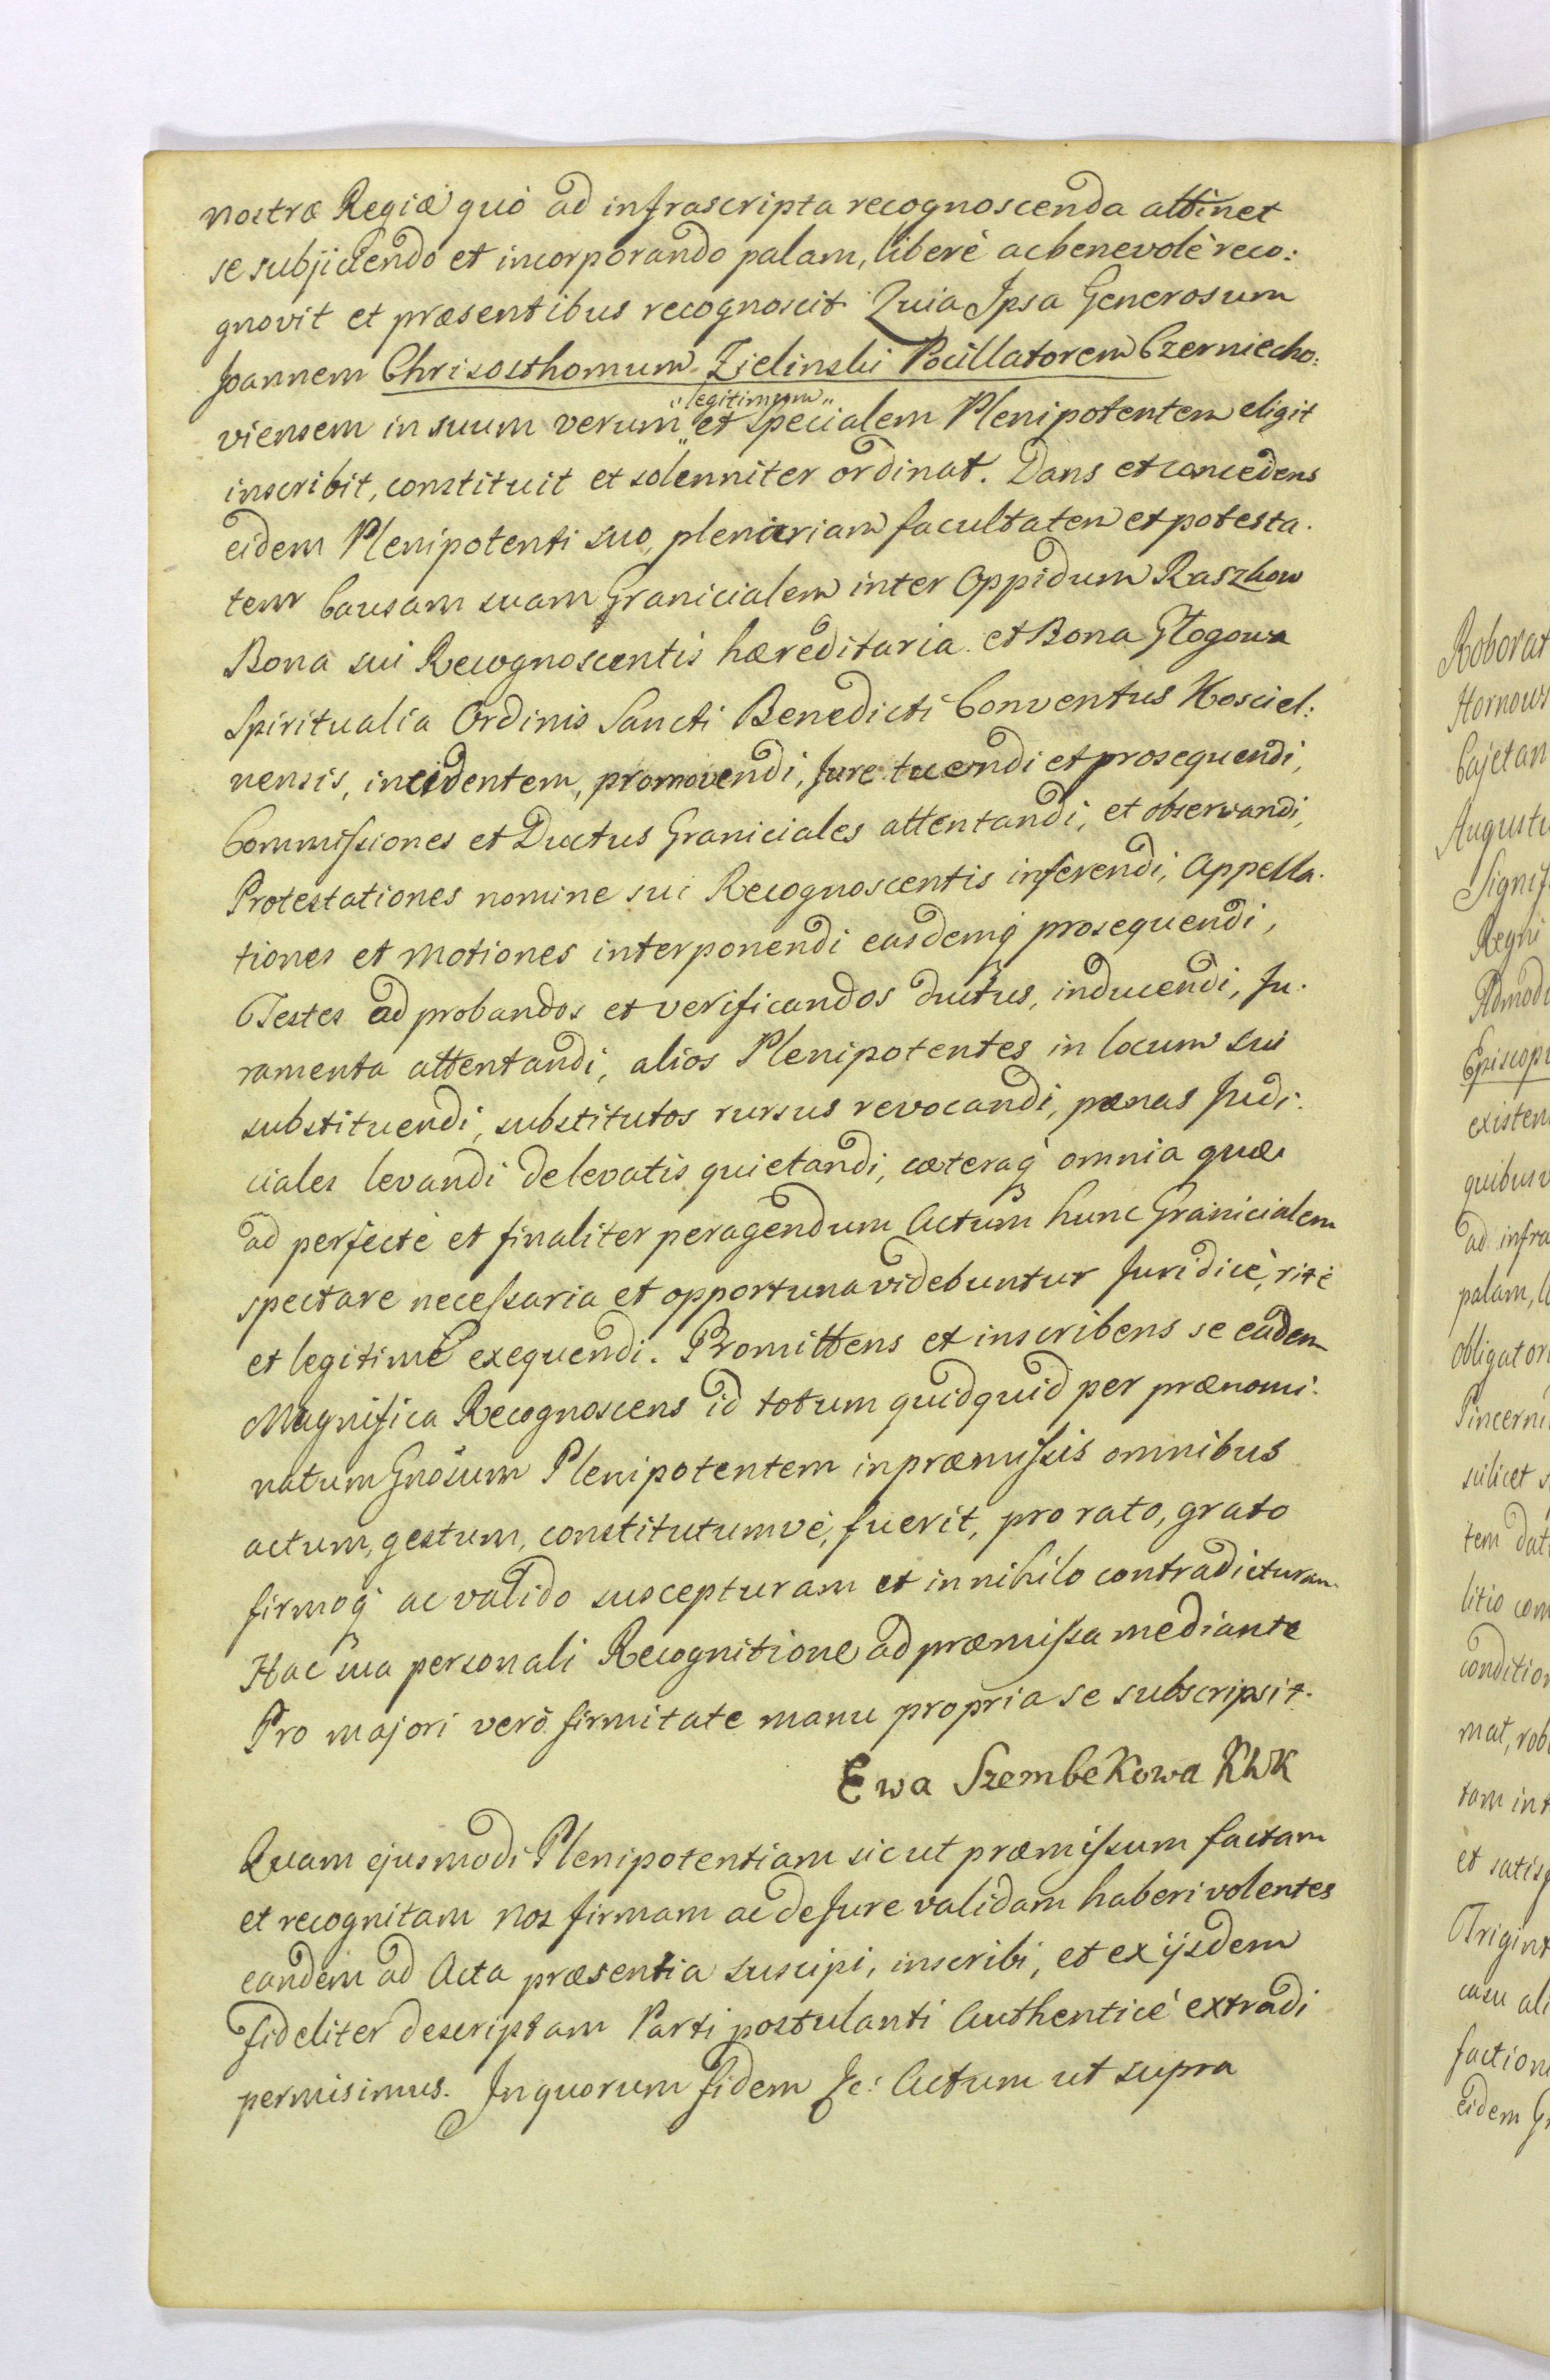 nostræ Regiæ quò ad infrascripta recognoscenda attinet
se subjiciendo et incorporando palam, liberè ac benevolè reco:
gnovit et præsentibus recognoscit Quia Ipsa Generosum
Joannem Chrisosthomum Zielinski Pocillatorem Czerniecho:
„legitimum„
viensem in suum verum „ et specialem Plenipotentem eligit
inscribit, constituit et solenniter ordinat. Dans et concedens
eidem Plenipotenti suo, plenariam facultatem et potesta.
tem Causam suam Granicialem inter Oppidum Raszkow
Bona sui Recognoscentis hæreditaria et Bona Głogowa
Spiritualia Ordinis Sancti Benedicti Conventus Kosciel:
nensis, incidentem, promovendi, Jure tuendi et prosequendi,
Commissiones et Ductus Graniciales attentandi, et observandi,
Protestationes nomine sui Recognoscentis inferendi, Appella.
tiones et motiones interponendi easdemq prosequendi,
Testes ad probandos et verificandos ductus, inducendi, Ju.
ramenta attentandi, alios Plenipotentes in locum sui
substituendi, substitutos rursus revocandi, pænas Judi.
ciales levandi de levatis quietandi, cæteraq omnia quæ
ad perfectè et finaliter peragendum Actum hunc Granicialem
spectare necessaria et opportuna videbuntur Juridicè, ritè
et legitimè exequendi. Promittens et inscribens se eadem
Magnifica Recognoscens id totum quidquid per prænomi.
natum Gnosum Plenipotentem in præmissis omnibus
actum, gestum, constitutumvè, fuerit, pro rato, grato
firmoq ac valido suscepturam et in nihilo contradicturam.
Hac sua personali Recognitione ad præmissa mediante
Pro majori verò firmitate manu propria se subscripsit.
Ewa Szembekowa KWK
Quam ejusmodi Plenipotentiam sic ut præmissum factam
et recognitam nos firmam ac de Jure validam haberi volentes
eandem ad Acta præsentia suscipi, inscribi, et ex ijsdem
fideliter descriptam Parti postulanti Authenticè extradi
permisimus. In quorum fidem &c: Actum ut supra
Roborat
Hornows
Cajetan
Augustu
Signif
Regni
Admod
Episcop
existen
quibus
ad infra
palam, l
obligator
Pincerni
scilicet s
tem dat
litio com
condition
mat, rob
tam int
et satisf
Trigint
casu ali
faction
eidem G